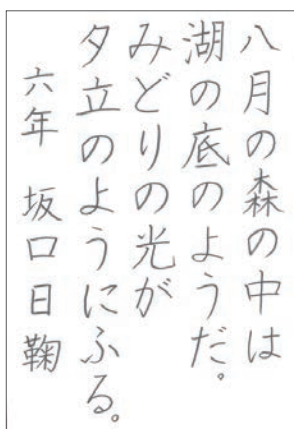 八月の森の中は
湖の底のようだ。
みどりの光が
夕立のようにふる。
六年 坂口日鞠